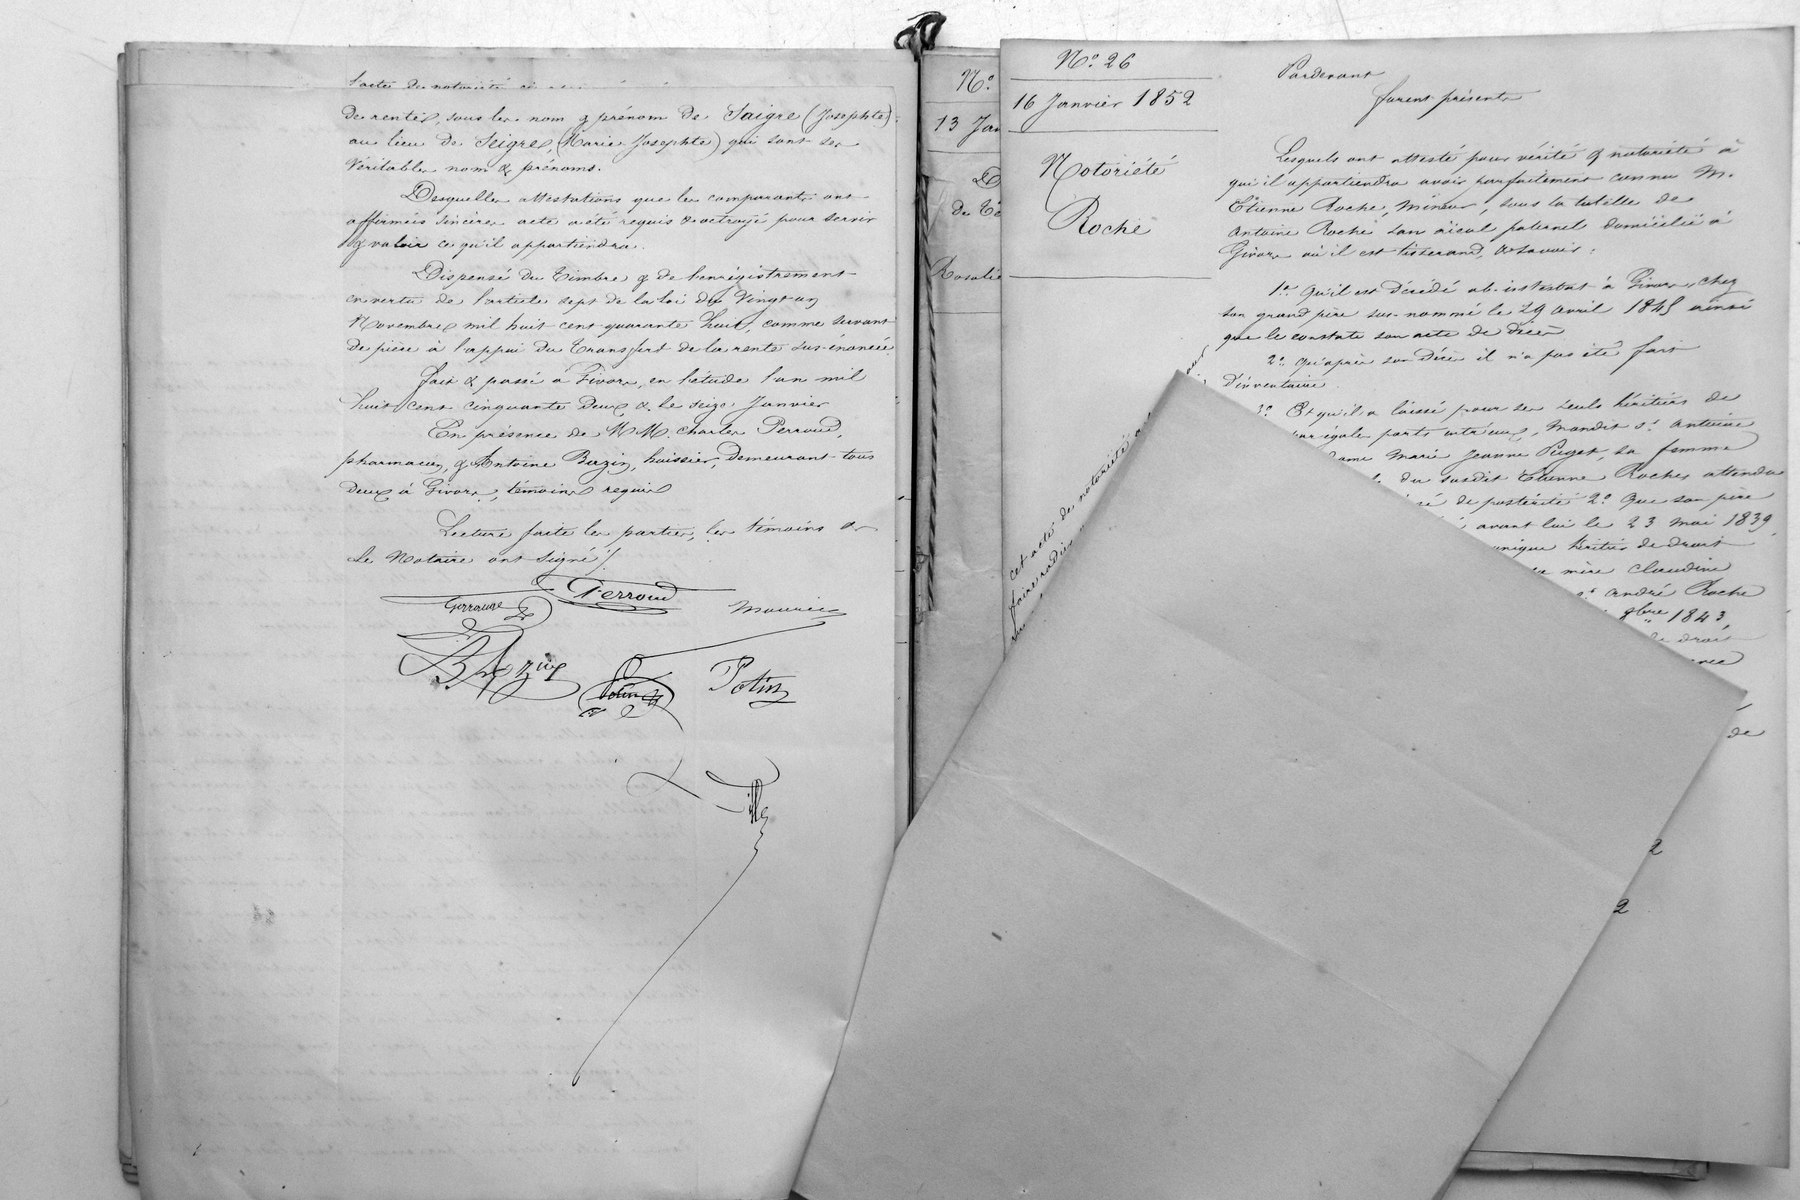 l'acte de notoriété
de rentes, sous les nom & prénom de Saigre (Josephte)
au lieu de Seigre, (Marie Josephte) qui sont ses
véritables nom & prénoms.
Desquelles attestations que les comparants ont
affirmées sincères acte a été requis & octroyé pour servir
& valoir ce qu'il appartiendra.
Dispensé du timbre & de l'enrégistrement
en vertu de l'article sept de la loi du vingt un
Novembre mil huit cent quarante huit, comme servant
de pièce à l'appui du transfert de la rente sus-énoncée.
fait & passé à Givors, en l'étude l'an mil
huit cent cinquante deux & le seize Janvier
En présence de MM. Charles Perroud,
pharmacien, & Antoine Bazin, huissier, demeurant tous
deux à Givors, témoins requis
Lecture faite les parties, les témoins &
le Notaire ont signé /.
Perroud
Mounier
Bazin
Potin
Potin
N.°
13 Jan
D
de
Rosalie
N.° 26
16 Janvier 1852
Notoriété
Roche
Pardevant
furent présents
Lesquels ont attesté pour vérité & notoriété à
qui il appartiendra avoir parfaitement connu M.
Etienne Roche, Mineur, sous la tutelle de
Antoine Roche son aïeul paternel domicilié à
Givors où il est tisserand, & savoir :
1.° Qu'il est décédé ab-intestat à Givors, chez
son grand père sus-nommé le 29 avril 1845 ainsi
que le constate son acte de décès
2.° qu'après son décès il n'a pas été fait
d'inventaire
3.° Et qu'il a laissé pour ses seuls héritiers de
par égales parts entr'eux, mondit s.r antoine
dame Marie Jeanne Puget, sa femme
du susdit Etienne Roche, attendu
de postérité 2.° Que son père
avant lui le 23 mai 1839
unique héritier de droit
sa mère Claudine
s.r andré Roche
8bre 1843,
de droit
de
2
2
cet acte de notoriété
faire radier